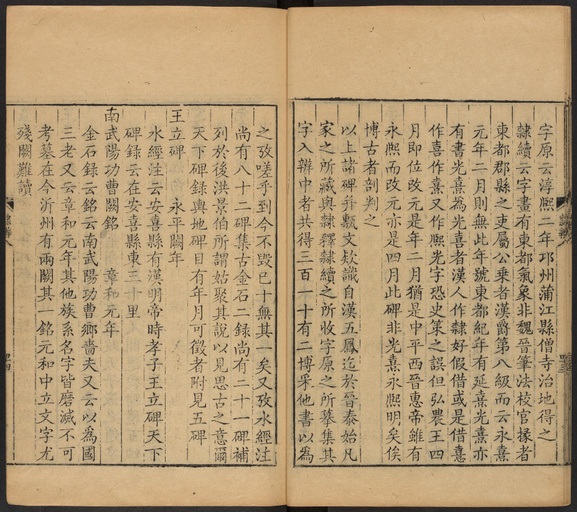 字原云淳熙二年邛州蒲江縣僧寺治地得之
隸續云字畫有東都氣象非魏晉筆法校官掾者
東都郡縣之吏屬公乗者漢爵第八級而云永熹
元年二月則無此年號東都紀年有延熹光熹亦
有書光熹為光喜者漢人作隸好假借或是借憙
作喜作熹又作熈光字恐史策之誤但弘農王四
月即位改元是年二月猶是中平西晉惠帝雖有
永熈而改元亦是四月此碑非光熹永熈明矣俟
博古者剖判之
以上諸碑并甎文欵識自漢五鳳迄於晉泰始凡
家之所藏與隸釋隸續之所收字原之所摹集其
字入辨中者共得三百一十有二博采他書以為
之攷嗟乎到今不毀已十無其一矣又攷水經注
尚有八十二碑集古金石二録尚有二十一碑補
列於後洪景伯所謂姑聚其說以見思古之意爾
天下碑録輿地碑目有年月可徵者附見五碑
王立碑 永平闕年
水經注云在安喜縣有漢明帝時孝子王立碑天下
碑録云在安喜縣東三十里
南武陽功曹闕銘 章和元年
金石録云銘云南武陽功曹鄉嗇夫又云以為國
三老又云章和元年其他族系名字皆磨滅不可
考墓在今沂州有兩闕其一銘元和中立文字尤
殘闕難讀